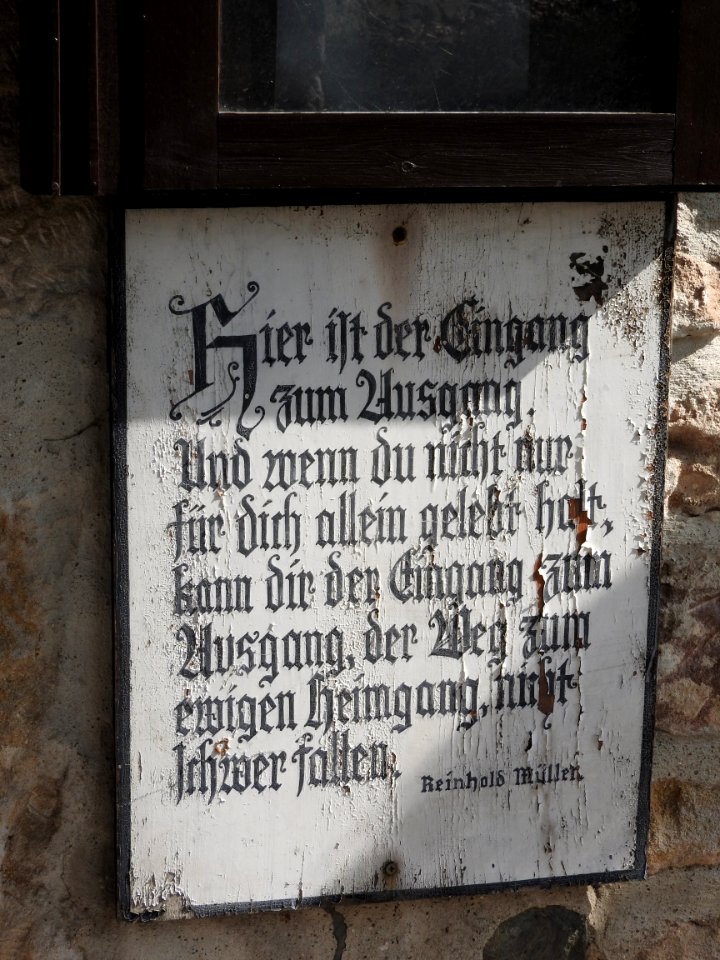 Hier ist der Eingang
zum Ausgang.
Und wenn du nicht nur
für dich allein gelebt hast,
kann dir der Eingang zum
Ausgang, der Weg zum
ewigen Heimgang, nicht
schwer fallen.
Reinhold Müller